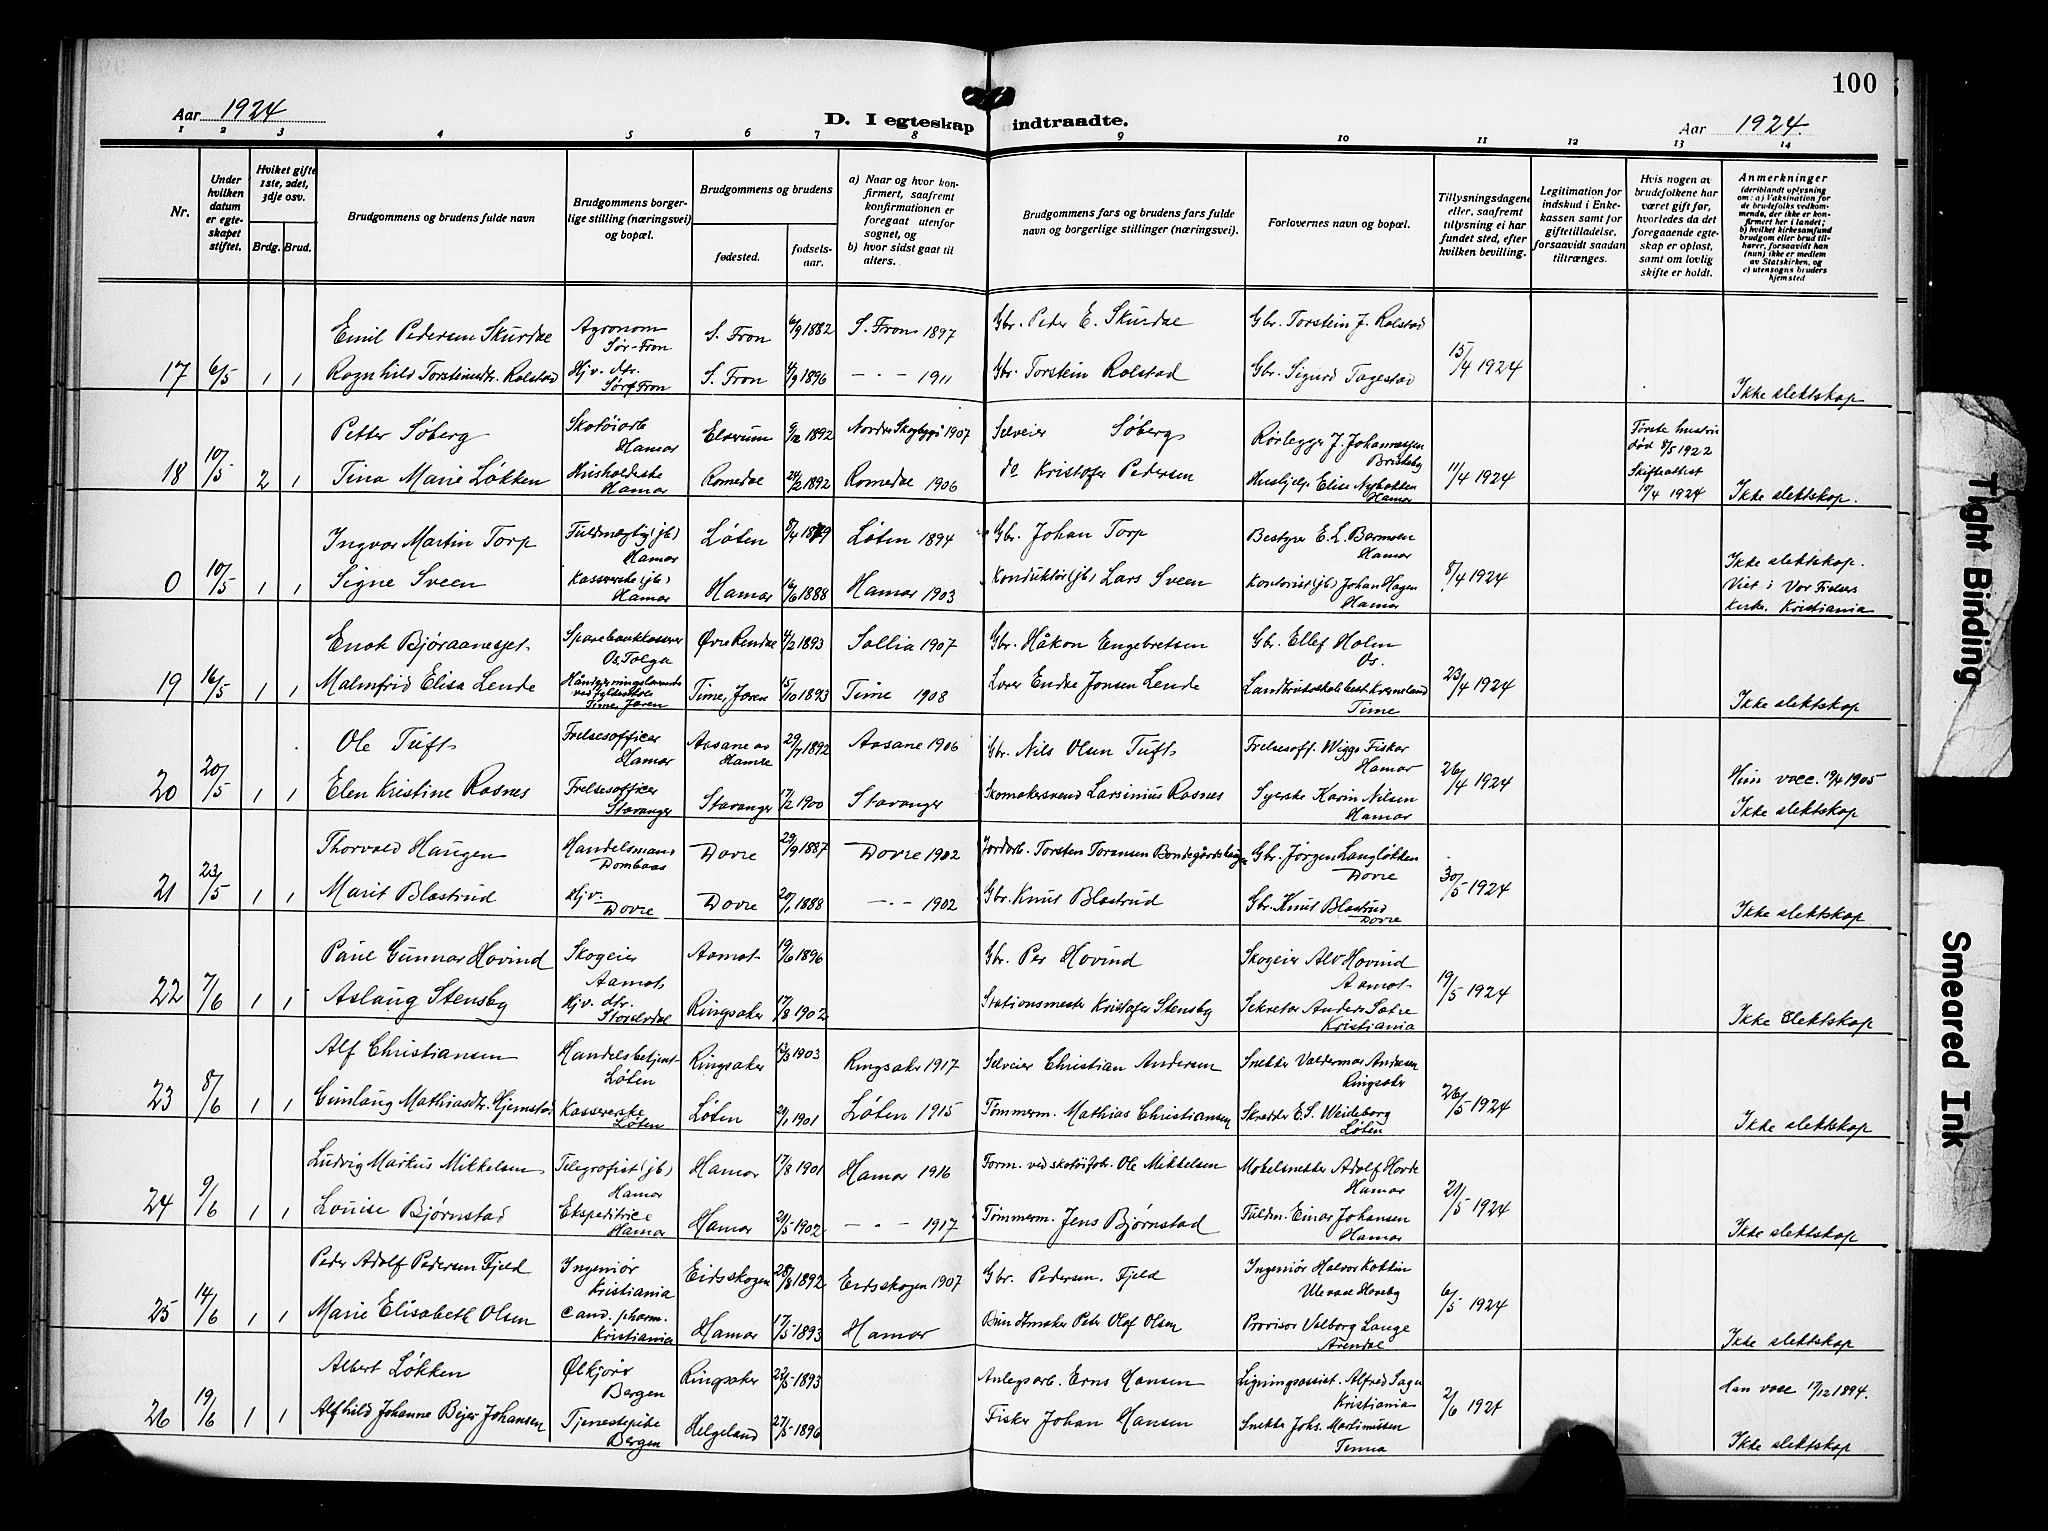 100
Aar 1924
D. I egteskap indtraadte.
Aar 1924.
1 2 3 4 5 6 7 8 9 10 11 12 13 14
Nr.
Under hvilken datum er egteskapet stiftet.
Hvilket gifte 1ste, 2det, 3dje osv.
Brdg. Brud.
Brudgommens og brudens fulde navn
Brudgommens borgerlige stilling (næringsvei) og bopæl.
Brudgommens og brudens
fødested.
fødselsaar.
a) Naar og hvor konfirmert, saafremt konfirmationen er foregaat utenfor sognet, og
b) hvor sidst gaat til alters.
Brudgommens fars og brudens fars fulde navn og borgerlige stillinger (næringsvei).
Forlovernes navn og bopæl.
Tillysningsdagene eller, saafremt tillysning ei har fundet sted, efter hvilken bevilling.
Legitimation for indskud i Enkekassen samt for giftetilladelse, forsaavidt saadan tiltrænges.
Hvis nogen av brudefolkene har været gift før, hvorledes da det foregaaende egteskap er opløst, samt om lovlig skifte er holdt.
Anmerkninger
(deriblandt oplysning om: a) Vaksination for de brudefolks vedkommende, der ikke er konfirmert her i landet; b) hvilket kirkesamfund brudgom eller brud tilhører, forsaavidt han (hun) ikke er medlem av Statskirken, og c) utensogns bruders hjemsted
Emil Pedersen Skurdal Agronom Sør-Fron S. Fron 6/9 1882 S. Fron 1897 Gbr. Peder E. Skurdal Gbr. Torstein J. Rolstad
17 6/5 1 1 Ragnhild Torsteinsdtr. Rolstad Hjv. dtr. Sør-Fron S. Fron 4/9 1896 -"- 1911 Gbr. Torstein Rolstad Gbr. Sigurd Tagestad 15/4 1924 Ikke slektskap
Petter Søberg Skotøiarb Hamar Elverum 9/12 1892 Nordre Skogbygd 1907 Selveier Søberg Rørlegger J. Johannessen Første hustru død 8/5 1922
18 10/5 2 1 Tina Marie Løkken Husholderske Hamar Romedal 24/2 1892 Romedal 1906 do Kristofer Pedersen Hushjelp Elise Nybakken Hamar 11/4 1924 Skifteattest 10/4 1924 Ikke slektskap.
Ingvar Martin Torp Fuldmægtig (jb) Hamar Løten 8/4 1879 Løten 1894 Gbr. Johan Torp Bestyrer E. L. Hamar
0 10/5 1 1 Signe Sveen Kassererske (jb) Hamar Hamar 16/6 1888 Hamar 1903 Konduktør (jb) Lars Sveen Kontorist (jb) Johan Hagen Hamar 8/4 1924 Ikke slektskap. Viet i Vor Frelsers Kirke, Kristiania
Enok Bjøraanesset Sparebankkasserer Os, Tolga Øvre Rendal 4/2 1893 Sollia 1907 Gbr. Håkon Engebretsen Gbr. Ellef Holm Os.
19 16/5 1 1 Malmfrid Elisa Lende Time, Jæren Time, Jæren 15/10 1893 Time 1908 Lærer Endre Jonsen Lende Kverneland Time 23/4 1924 Ikke slektskap
Ole Tuft Frelsesofficer Hamar Aasane av Hamre 29/7 1892 Aasane 1906 Gbr. Nils Olsen Tuft Frelsesoff. Wiggo Fisker Hamar
20 20/5 1 1 Elen Kristine Rasnes Frelsesofficer Stavanger Stavanger 17/2 1900 Stavanger Skomakersvend Larsinius Rasnes Syerske Karin Nilsen Hamar 26/4 1924 Hun vacc. 19/4 1905 Ikke slektskap
Thorvald Haugen Handelsmann Dombaas Dovre 29/9 1887 Dovre 1902 Jordarb. Torsten Toransen Bondegårdshaugen Gbr. Jørgen Langløkken Dovre
21 23/5 1 1 Marit Blæstrud Hjv. Dovre Dovre 20/1 1888 -"- 1902 Gbr. Knut Blæstrud Gbr. Knut Blæstrud Dovre 30/5 1924 Ikke slektskap
Paul Gunnar Hovind Skogeier Aamot Aamot 19/6 1896 Gbr. Per Hovind Skogeier Alv Hovind Aamot
22 7/6 1 1 Aslaug Stensby Hjv. dtr. Storelvdal Ringsaker 17/8 1902 Stationsmester Kristofer Stensby Sekretær Anders Sætre Kristiania 19/5 1924 Ikke slektskap
Alf Christiansen Handelsbetjent Løten Ringsaker 13/3 1903 Ringsaker 1917 Selveier Christian Andersen Snekker Valdemar Andersen Ringsaker
23 8/6 1 1 Gunlaug Mathiasdtr. Hjemstad Kassererske Løten Løten 29/1 1901 Løten 1915 Tømmerm. Mathias Christiansen Skrædder E. S. Weideborg Løten 26/5 1924 Ikke slektskap
Ludvig Markus Mikkelsen Telegrafist (jb) Hamar Hamar 17/8 1901 Hamar 1916 Form. ved skotøifab. Ole Mikkelsen Møbelsnekker Adolf Horde Hamar
24 9/6 1 1 Louise Bjørnstad Ekspeditrice Hamar Hamar 21/5 1902 -"- 1917 Tømmerm. Jens Bjørnstad Fuldm. Einar Johansen Hamar 21/5 1924 Ikke slektskap
Peder Adolf Pedersen Fjeld Ingeniør Kristiania Eidsskogen 28/8 1892 Eidsskogen 1907 Gbr. Pedersen Fjeld Ingeniør Halvor Ullevaal Haveby
25 14/6 1 1 Marie Elisabeth Olsen Cand. pharm. Kristiania Hamar 17/5 1893 Hamar Buntmaker Peter Olaf Olsen Provisor Valborg Lange Arendal 6/5 1924 Ikke slektskap
Albert Løkken Ølkjører Bergen Ringsaker 22/5 1893 Anlegsarb. Erns Hansen Ligningsassist. Alfred Kristiania Han vacc 17/12 1894.
26 19/6 1 1 Alfhild Johanne Bejer Johansen Tjenestepike Bergen Helgeland 27/5 1896 Fisker Johan Hansen Snekker Johs. Martinussen Tenna 2/6 1921 Ikke slektskap
Tight Binding
Smeared Ink